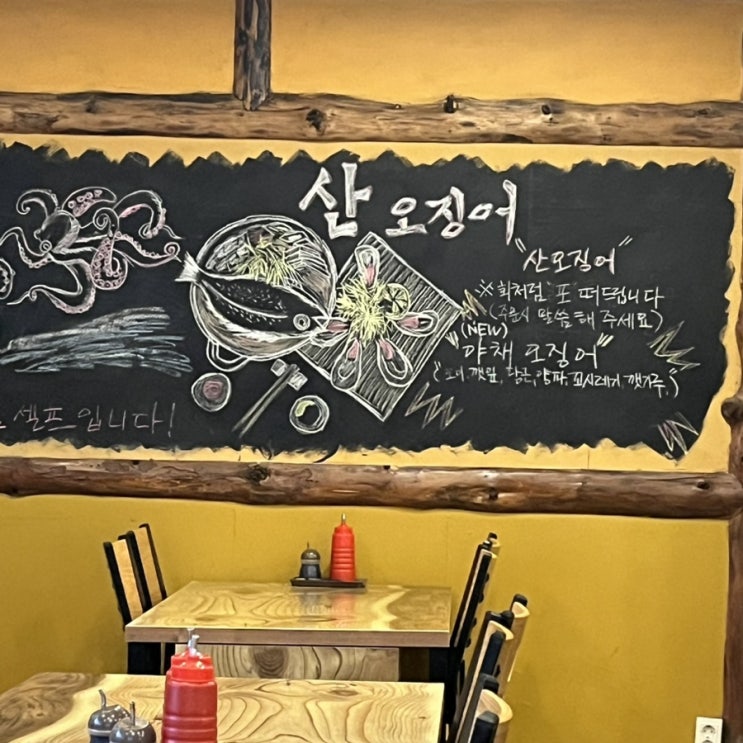 산 오징어
"산오징어"
※ 회처럼 포 떠드립니다
(주문시 말씀해 주세요)
(NEW)
"야채 오징어"
깻잎, 당근, 양파, 꼬시래기, 깻가루,)
셀프입니다!